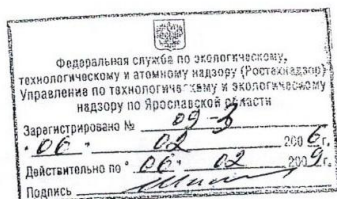 Федеральная служба по экологическому,
технологическому и атомному надзору (Ростехнадзор)
Управление по технологическому и экологическому
надзору по Ярославской области
Зарегистрировано № 09-3
"06" 02 2006г.
Действительно по "06" 02 2009г.
Подпись